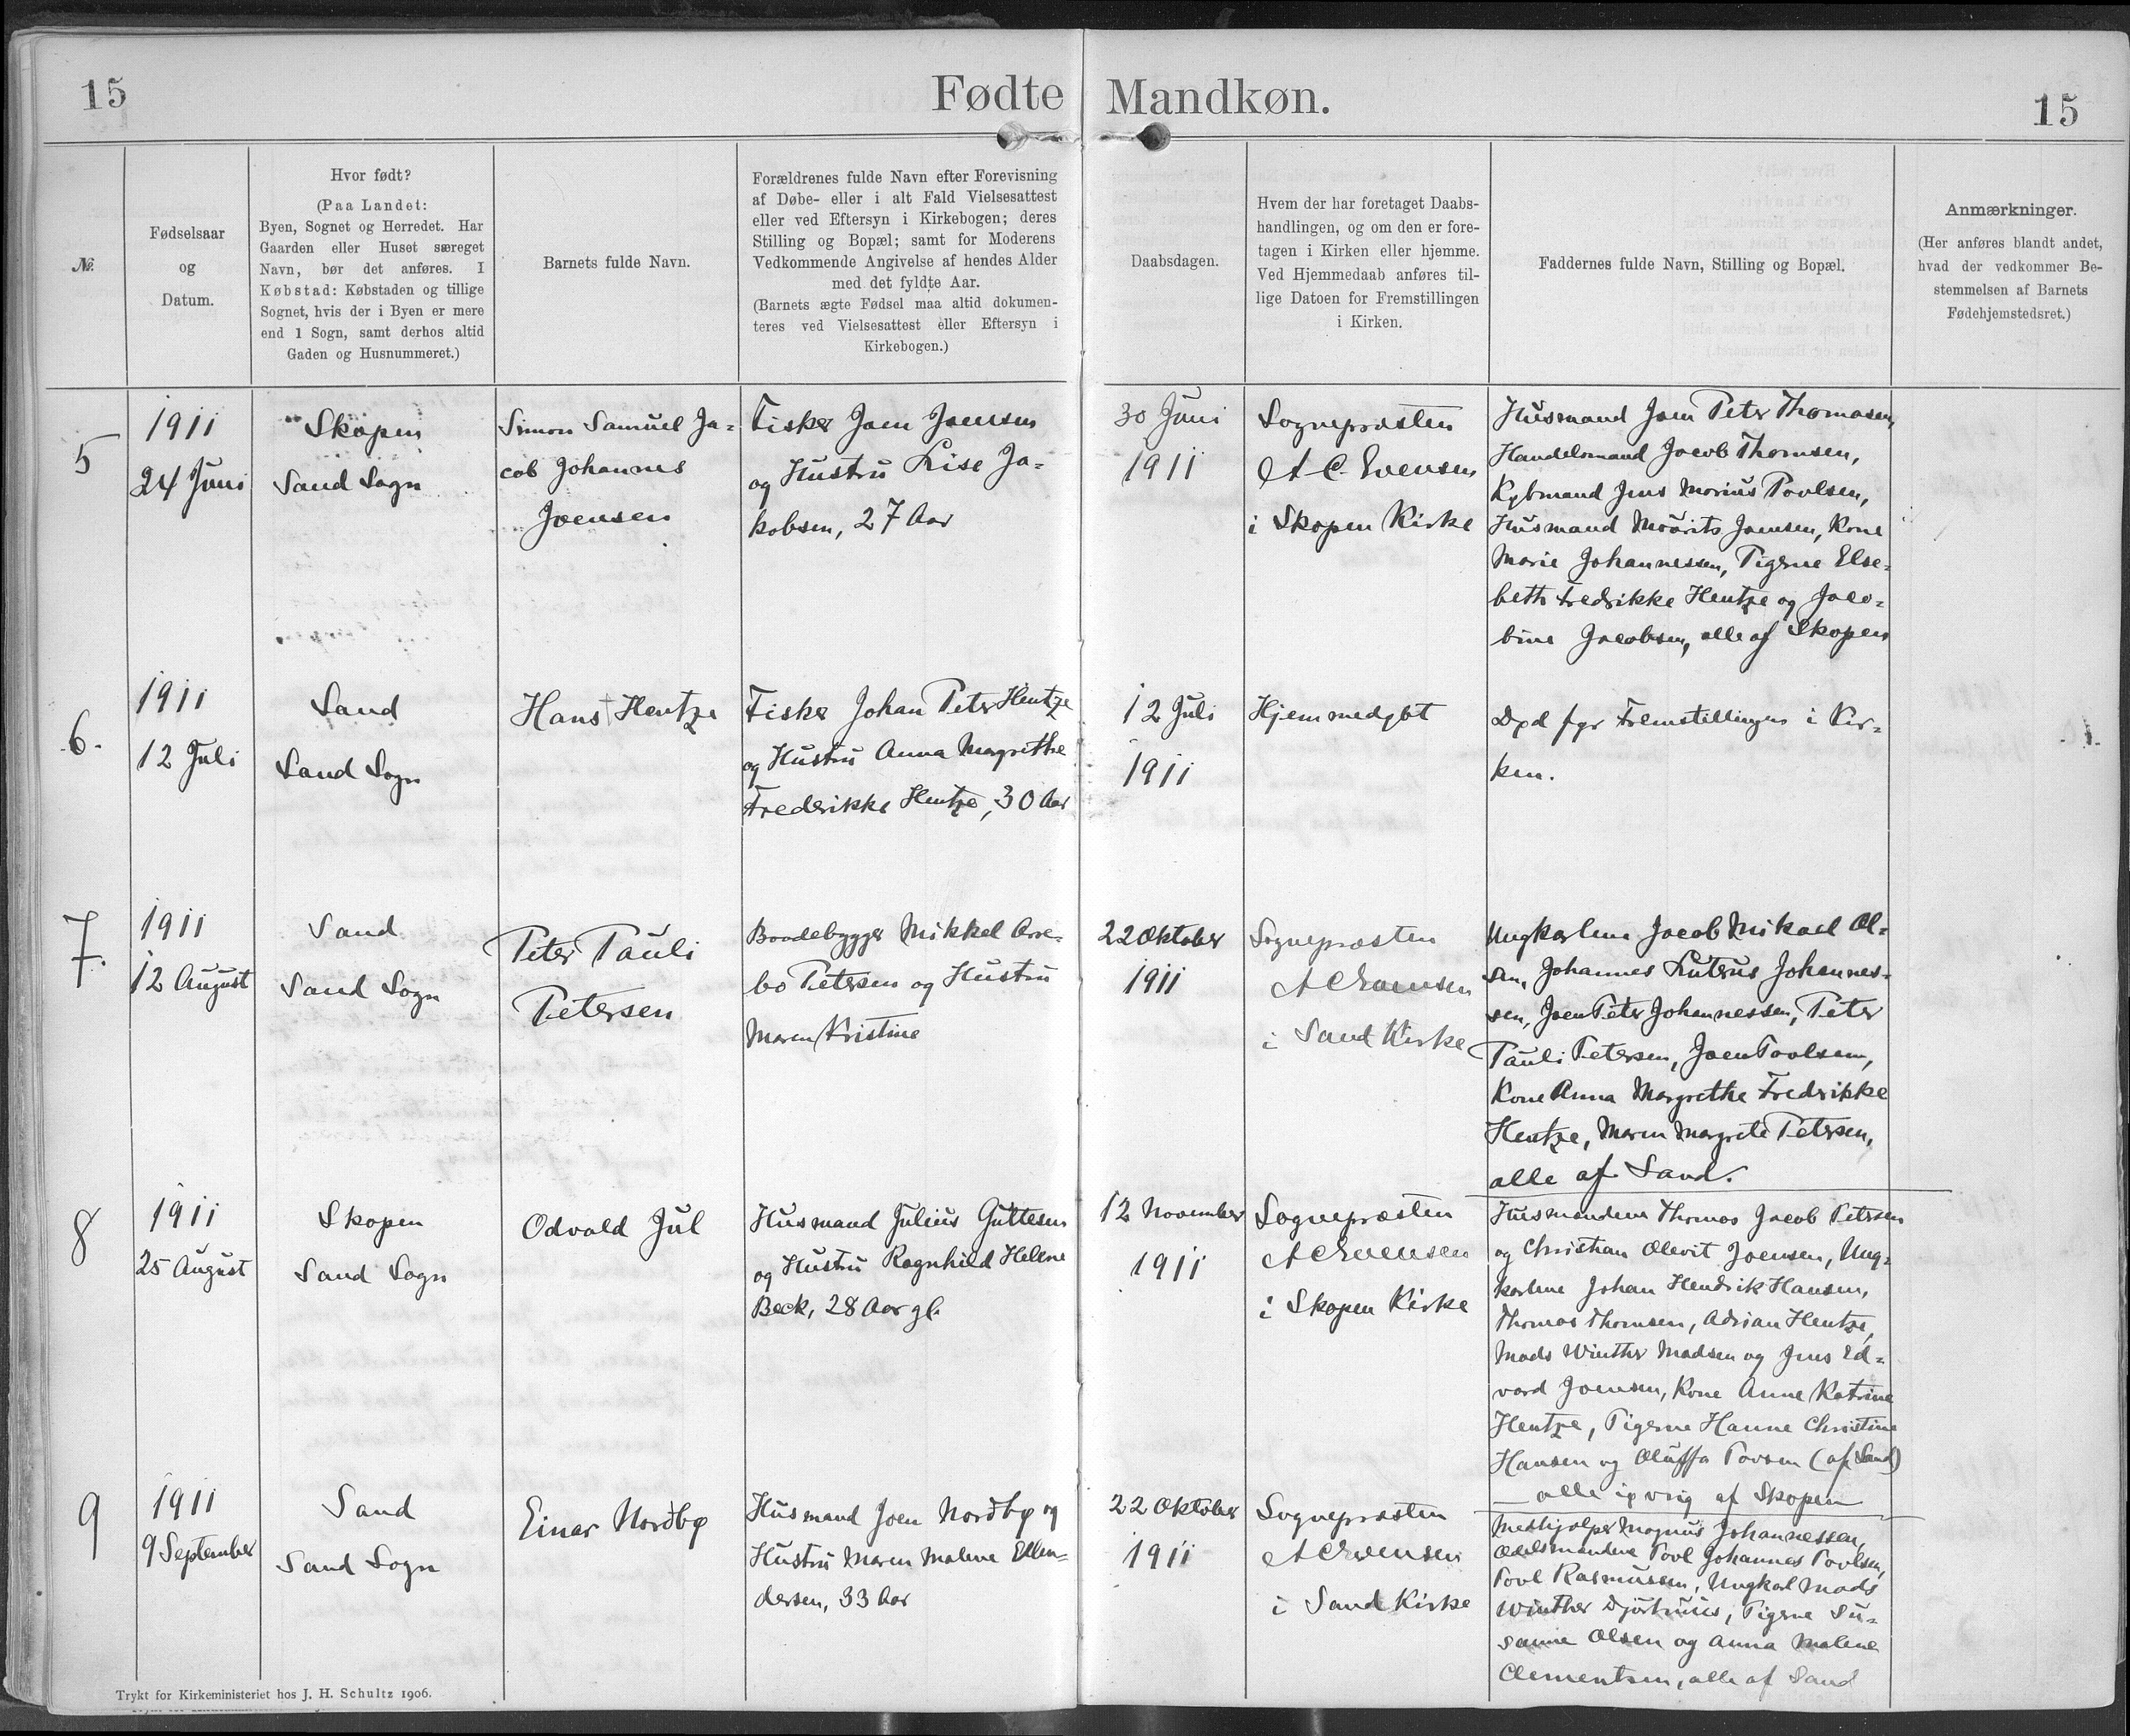 15
Fødte Mandkøn.
15
№
Fødselsaar
og
Datum.
Hvor født?
(Paa Landet:
Byen, Sognet og Herredet. Har
Gaarden eller Huset særeget
Navn, bør det anføres. I
Købstad: Købstaden og tillige
Sognet, hvis der i Byen er mere
end 1 Sogn, samt derhos altid
Gaden og Husnummeret.)
Barnets fulde Navn.
Forældrenes fulde Navn efter Forevisning
af Døbe- eller i alt Fald Vielsesattest
eller ved Eftersyn i Kirkebogen; deres
Stilling og Bopæl; samt for Moderens
Vedkommende Angivelse af hendes Alder
med det fyldte Aar.
(Barnets ægte Fødsel maa altid dokumen-
teres ved Vielsesattest eller Eftersyn i
Kirkebogen.)
Daabsdagen.
Hvem der har foretaget Daabs-
handlingen, og om den er fore-
tagen i Kirken eller hjemme.
Ved Hjemmedaab anføres til-
lige Datoen for Fremstillingen
i Kirken.
Faddernes fulde Navn, Stilling og Bopæl.
Anmærkninger.
(Her anføres blandt andet,
hvad der vedkommer Be-
stemmelsen af Barnets
Fødehjemstedsret.)
5
1911
24 Juni
Skopen
Sand Sogn
Simon Samuel Ja-
cob Johannes
Joensen
Fisker Joen Joensen
og Hustru Lise Ja-
kobsen, 27 Aar
30 Juni
1911
Sognepræsten
A C. Evensen
i Skopen Kirke
Husmand Joen Peter Thomasen,
Handelsmand Jacob Thomsen,
Købmand Jens Marius Poulsen,
Husmand Mourits Joensen, Kone
Marie Johannessen, Pigerne Else-
beth Fredrikke Hentze og Jaco-
bine Jacobsen, alle af Skopen
6.
1911
12 Juli
Sand
Sand Sogn
Hans † Hentze
Fisker Johan Peter Hentze
og Hustru Anna Margrethe
Frederikke Hentze, 30 Aar
12 Juli
1911
Hjemmedøbt
Død før Fremstillingen i Kir-
ken.
7.
1911
12 August
Sand
Sand Sogn
Peter Pauli
Petersen
Baadebygger Mikkel Arre-
bo Petersen og Hustru
Maren Kristine
22 Oktober
1911
Sognepræsten
A C Evensen
i Sand Kirke
Ungkarlene Jacob Mikael Ol-
sen, Johannes Luterus Johannes-
sen, Joen Peter Johannessen, Peter
Pauli Petersen, Joen Poulsen,
Kone Anna Margrethe Fredrikke
Hentze, Maren Margrete Petersen,
alle af Sand.
8
1911
25 August
Skopen
Sand Sogn
Odvald Jul
Husmand Julius Guttesen
og Hustru Ragnhild Helene
Beck, 28 Aar gl.
12 November
1911
Sognepræsten
A C Evensen
i Skopen Kirke
Husmændene Thomas Jacob Petersen
og Christian Olevit Joensen, Ung-
karlene Johan Hendrik Hansen,
Thomas Thomsen, Adrian Hentze,
Mads Winther Madsen og Jens Ed-
vard Joensen, Kone Anne Katrine
Hentze, Pigerne Hanne Christine
Hansen og Oluffa Poulsen (af Sand)
alle iøvrig af Skopen
9
1911
9 September
Sand
Sand Sogn
Einar Nordbø
Husmand Joen Nordbø og
Hustru Maren Malene Ellen-
dersen, 33 Aar
22 Oktober
1911
Sognepræsten
A C Evensen
i Sand Kirke
Medhjælper Magnus Johannessen,
Odelsmændene Povl Johannes Povlsen,
Povl Rasmussen, Ungkarl Mads
Winther Djurhuus, Pigerne Su-
sanne Olsen og Anna Malene
Clementsen, alle af Sand
Trykt for Kirkeministeriet hos J. H. Schultz 1906.